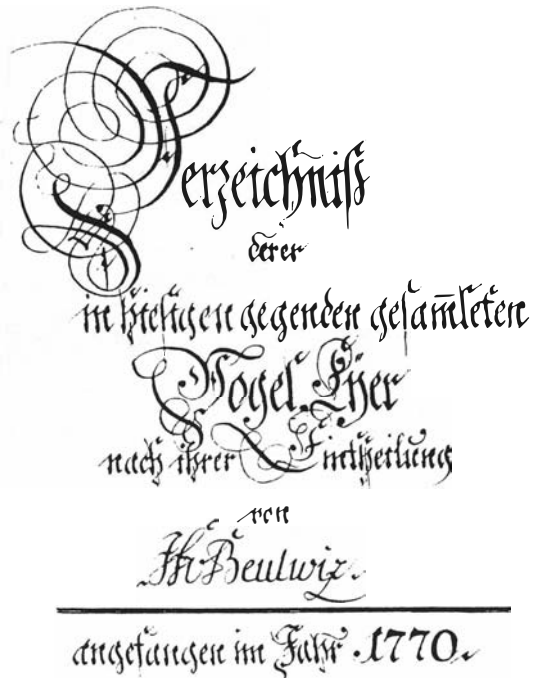 Verzeichniß
derer
in hiesigen gegenden gesam̅leten
Vogel Eyer
nach ihrer Eintheilung
von
Beulwiz.
angefangen im Jahr 1770.